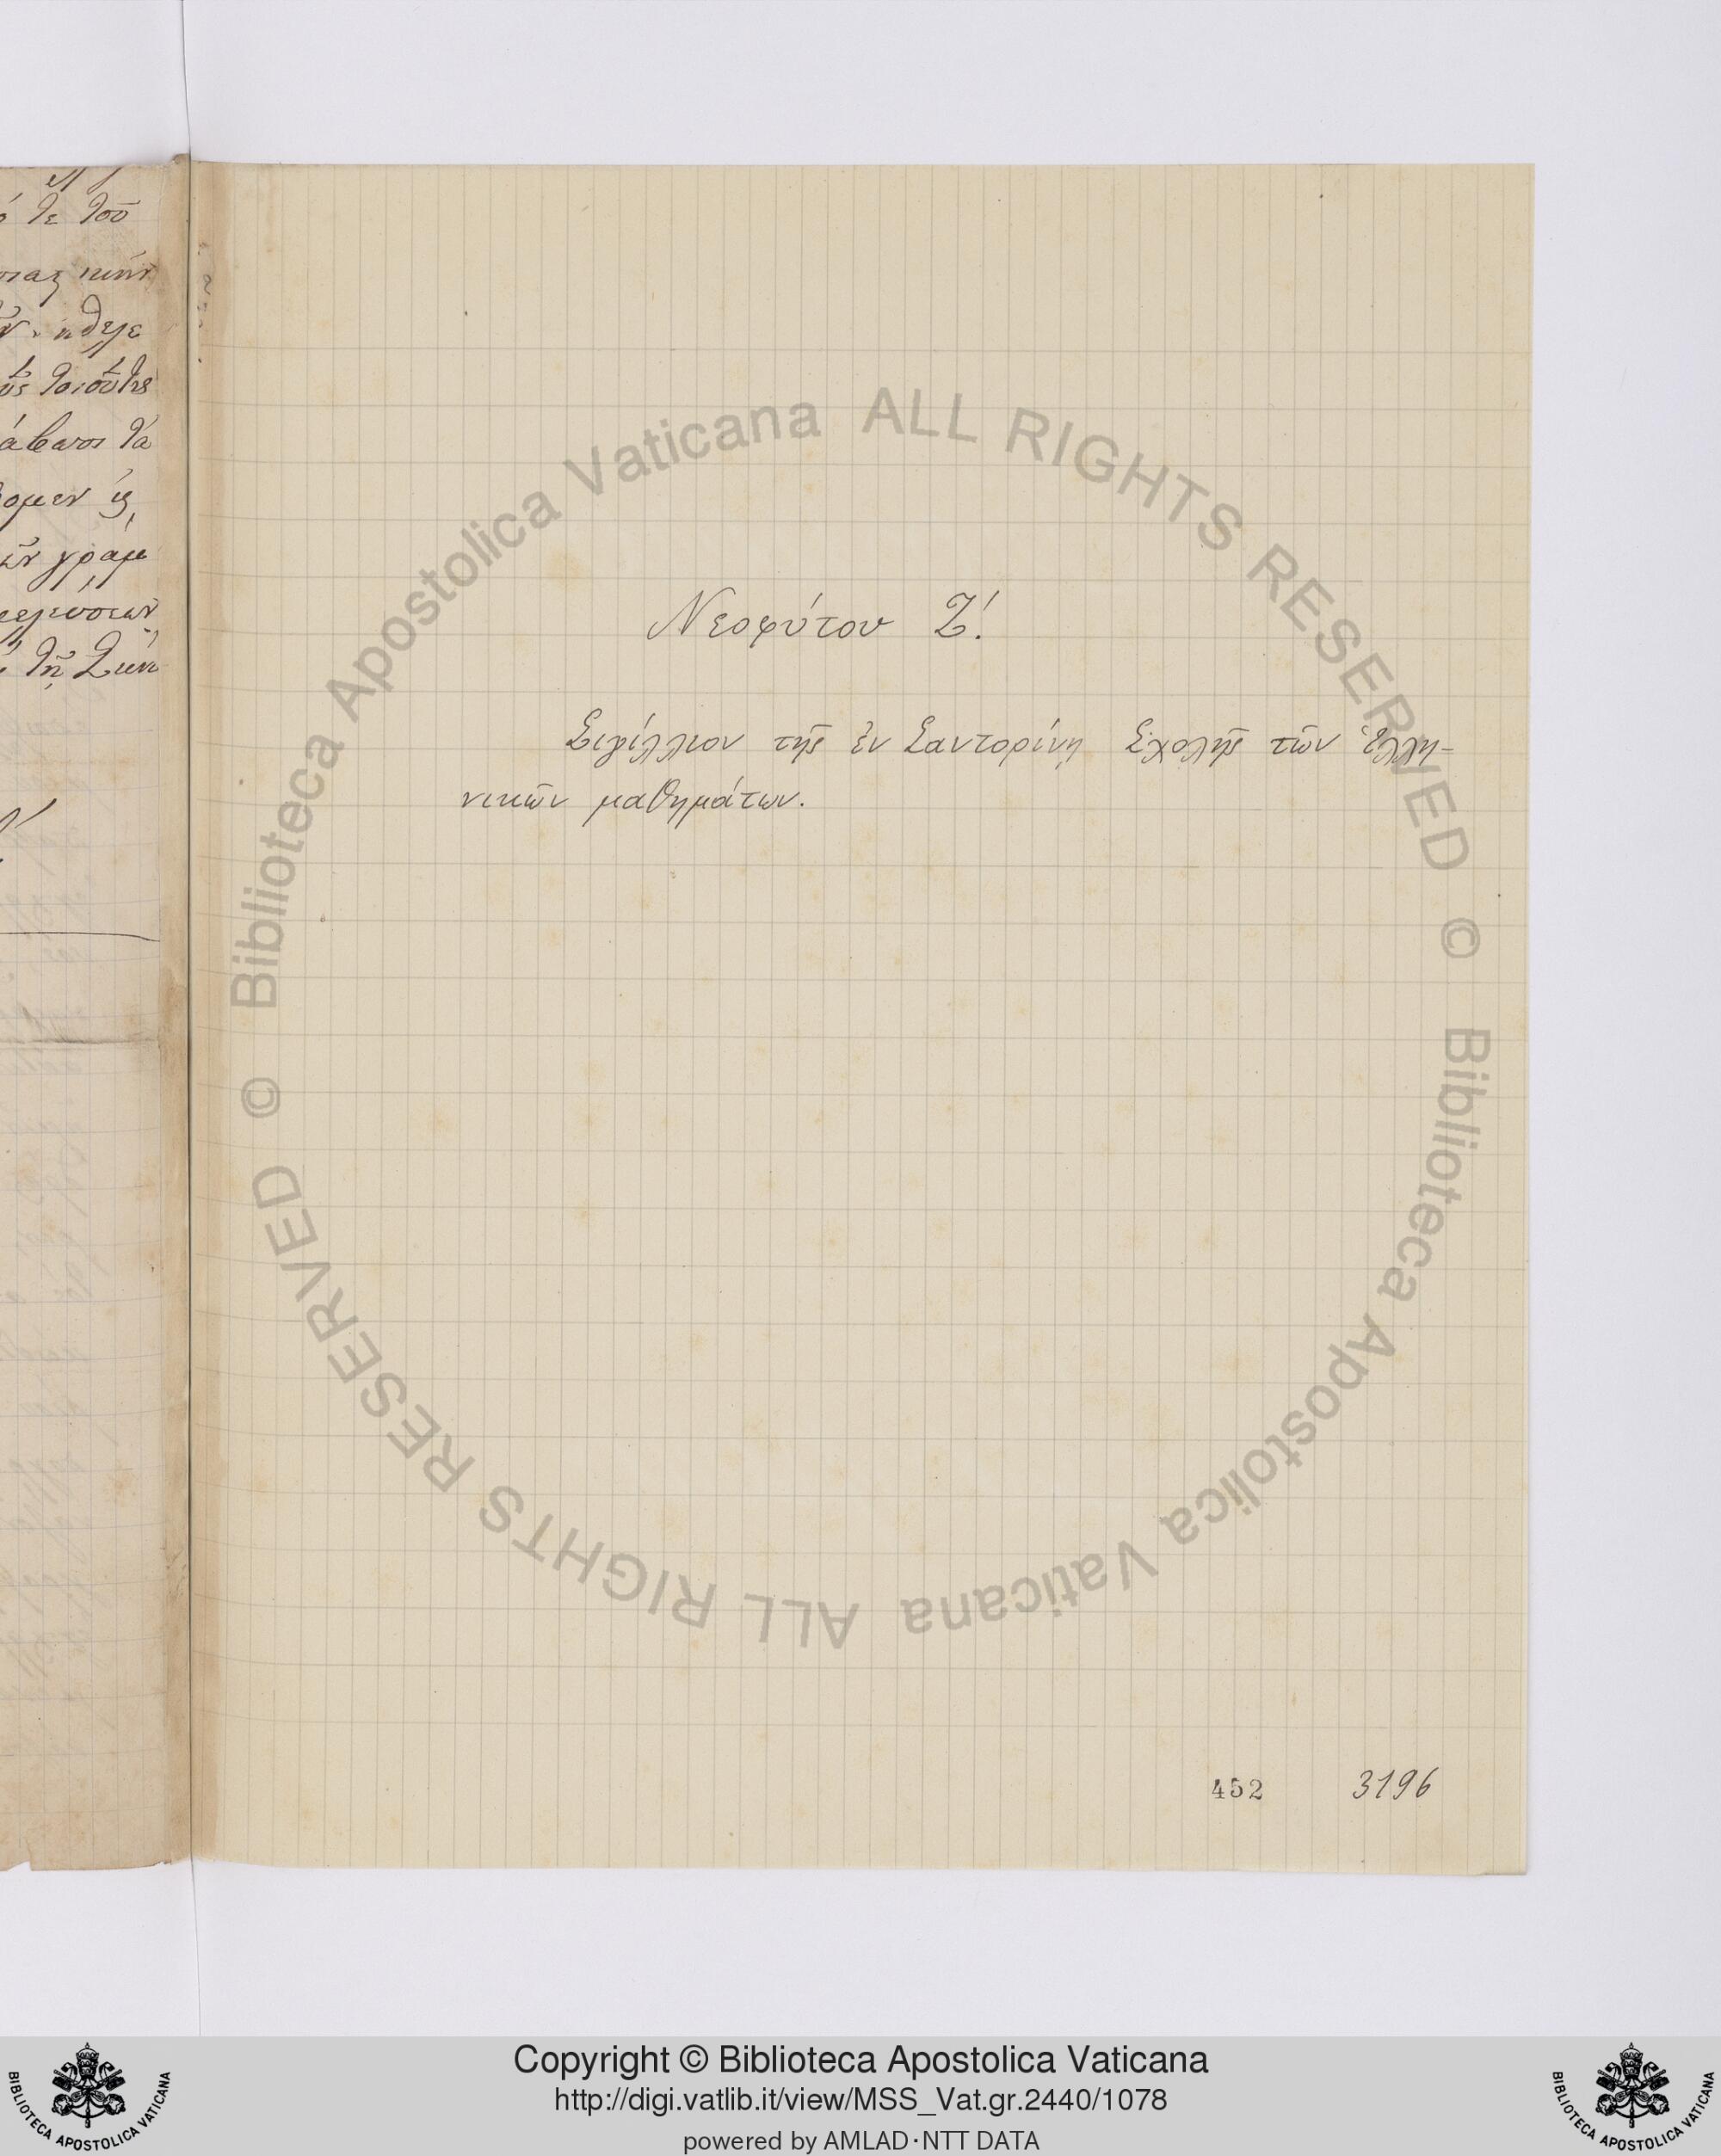 Νεοφύτου Ζ΄.
Σιγίλλιον τῆς ἐν Σαντορίνῃ Σχολῆς τῶν Ἑλλη-
νικῶν μαθημάτων.
452 3196
τε τοῦ
ἤθελε
τὰ
γραμ
τῇ
© Biblioteca Apostolica Vaticana ALL RIGHTS RESERVED
© Biblioteca Apostolica Vaticana ALL RIGHTS RESERVED
BIBLIOTECA APOSTOLICA VATICANA
Copyright © Biblioteca Apostolica Vaticana
http://digi.vatlib.it/view/MSS_Vat.gr.2440/1078
powered by AMLAD·NTT DATA
BIBLIOTECA APOSTOLICA VATICANA